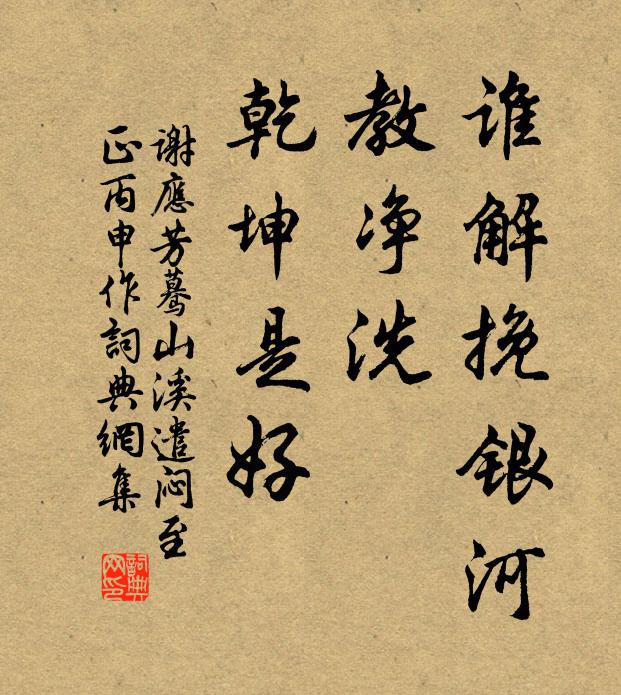 谁解挽银河
教净洗
乾坤是好
谢應芳蓦山溪遣闷至
正丙申作詞典網集
詞典网印